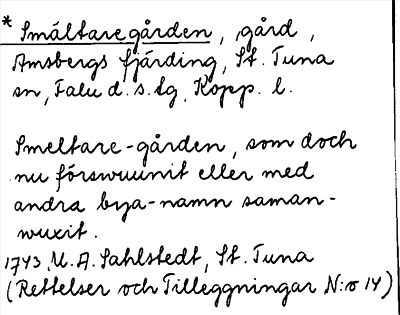 * Smältaregården, gård,
Amsbergs fjärding, St. Tuna
sn, Falu d. s. tg, Kopp. l.
Smeltare-gården, som doch
nu förswuunit eller med
andra bya-namn saman-
wuxit.
1743. U. A. Sahlstedt, St. Tuna
(Rettelser och Tilleggningar N:o 14)